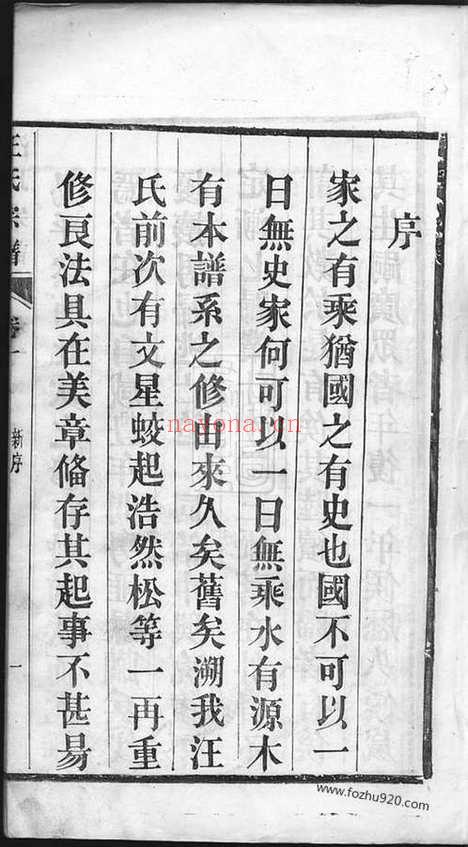 序
家之有乘猶國之有史也國不可以一
日無史家何可以一日無乘水有源木
有本譜系之修由來久矣舊矣溯我汪
氏前次有文星蛟起浩然松等一再重
修良法具在美章俻存其起事不甚易
汪氏宗譜
卷一
新序
一
nayona.cn
www.fozhu920.com